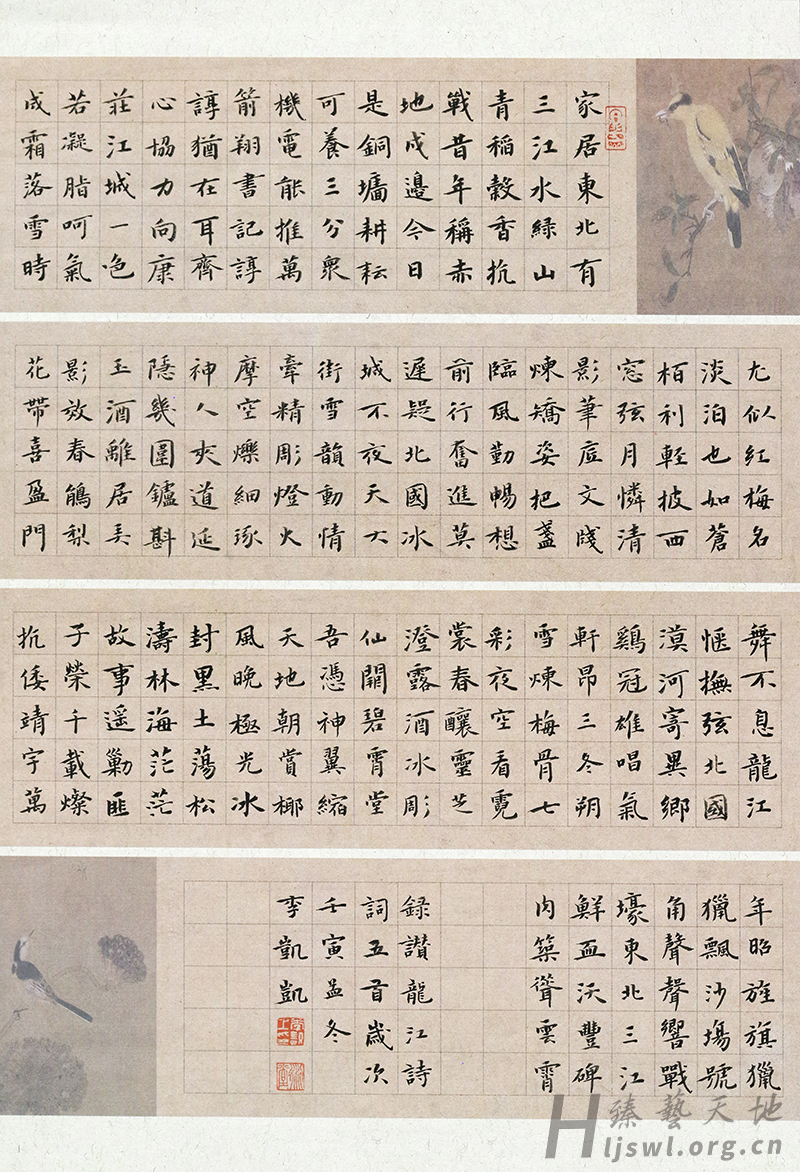 家居東北有
三江水綠山
青稻穀香抗
戰昔年稱赤
地戍邊今日
是銅墉耕耘
可養三分眾
機電能推萬
箭翔書記諄
諄猶在耳齊
心協力向康
莊江城一色
若凝脂呵氣
成霜落雪時
尤似紅梅名
淡泊也如蒼
栢利輕披西
窓弦月憐清
影筆底文牋
煉矯姿把盞
臨風勤暢想
前行奮進莫
遲疑北國冰
城不夜天大
街雪韻動情
牽精彫燈火
摩空爍細琢
神人夾道延
隱幾圍鑪斟
玉酒離居弄
影放春鵑梨
花帶喜盈門
舞不息龍江
愜撫弦北國
漠河寄異鄉
鷄冠雄唱氣
軒昂三冬朔
雪煉梅骨七
彩夜空看霓
裳春釀靈芝
澄露酒冰彫
仙闕碧霄堂
吾憑神翼縮
天地朝賞椰
風晚極光冰
封黑土蕩松
濤林海茫茫
故事遥勦匪
子榮千載燦
抗倭靖宇萬
年昭旌旗獵
獵飄沙場號
角聲聲響戰
壕東北三江
鮮血沃豐碑
內築聳雲霄
錄讚龍江詩
詞五首歲次
壬寅孟冬
李凱凱
臻藝天地
Hljswl.org.cn